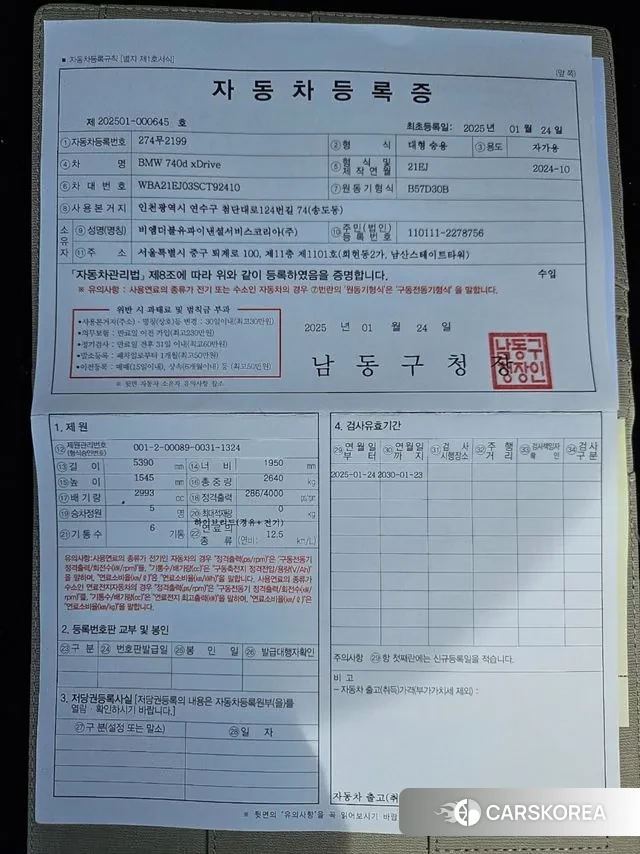 ■ 자동차등록규칙 [별지 제1호서식]
(앞 쪽)
자 동 차 등 록 증
제 202501-000645 호
최초등록일: 2025 년 01 월 24 일
①자동차등록번호 274무2199 ②형 식 대형 승용 ③용도 자가용
④차 명 BMW 740d xDrive ⑤형 식 및 제작연월 21EJ 2024-10
⑥차대번호 WBA21EJ03SCT92410 ⑦원동기형식 B57D30B
⑧사용본거지 인천광역시 연수구 첨단대로124번길 74(송도동)
소유자 ⑨성명(명칭) 비엠더블유파이낸셜서비스코리아(주) ⑩주민(법인)등록번호 110111-2278756
⑪주 소 서울특별시 중구 퇴계로 100, 제11층 제1101호(회현동2가, 남산스테이트타워)
「자동차관리법」 제8조에 따라 위와 같이 등록하였음을 증명합니다. 수입
※ 유의사항 : 사용연료의 종류가 전기 또는 수소인 자동차의 경우 ⑦번란의 '원동기형식'은 '구동전동기형식'을 말합니다.
위반 시 과태료 및 범칙금 부과
•사용본거지(주소)·명칭(상호)등 변경 : 30일이내(최고30만원)
•의무보험 : 만료일 이전 가입(최고230만원)
•정기검사 : 만료일 전후 31일 이내(최고60만원)
•말소등록 : 폐차일로부터 1개월(최고50만원)
•이전등록 : 매매(15일이내), 상속(6개월이내) 등 (최고50만원)
※ 뒷면 자동차 소유자 유의사항 참조
2025 년 01 월 24 일
남 동 구 청 장
남동구
청장인
1. 제원
⑫제원관리번호 (형식승인번호) 001-2-00089-0031-1324
⑬길 이 5390 mm ⑭너 비 1950 mm
⑮높 이 1545 mm ⑯총 중 량 2640 kg
⑰배 기 량 2993 cc ⑱정격출력 286/4000 ps/rpm
⑲승차정원 5 명 ⑳최대적재량 0 kg
㉑기 통 수 6 기통 ㉒연료의 종 류 하이브리드(경유+전기) (연비: 12.5 km/L)
유의사항:사용연료의 종류가 전기인 자동차의 경우 "정격출력(ps/rpm)"은 "구동전동기
정격출력/회전수(㎾/rpm)"를, "기통수/배기량(cc)"은 "구동축전지 정격전압/용량(V/Ah)"
을 말하며, "연료소비율(㎞/ℓ)"은 "연료소비율(㎞/㎾h)"을 말합니다. 사용연료의 종류가
수소인 연료전지자동차의 경우 "정격출력(ps/rpm)"은 "구동전동기 정격출력/회전수(㎾/
rpm)"를, "기통수/배기량(cc)"은 "연료전지 최고출력(㎾)"을 말하며, "연료소비율(㎞/ℓ)"은
"연료소비율(㎞/kg)"을 말합니다.
2. 등록번호판 교부 및 봉인
㉓구 분 ㉔번호판발급일 ㉕봉 인 일 ㉖발급대행자확인
3. 저당권등록사실 [저당권등록의 내용은 자동차등록원부(을)를
열람ㆍ확인하시기 바랍니다.]
㉗구 분(설정 또는 말소) ㉘일 자
4. 검사유효기간
㉙연월일 부 터 ㉚연월일 까 지 ㉛검 사 시행장소 ㉜주 행 거 리 ㉝검사책임자 확 인 ㉞검사 구분
2025-01-24 2030-01-23
주의사항 ㉙항 첫째란에는 신규등록일을 적습니다.
비 고
- 자동차 출고(취득)가격(부가가치세 제외) :
자동차 출고(취
※ 뒷면의 "유의사항"을 꼭 읽어보시기 바랍
CARSKOREA